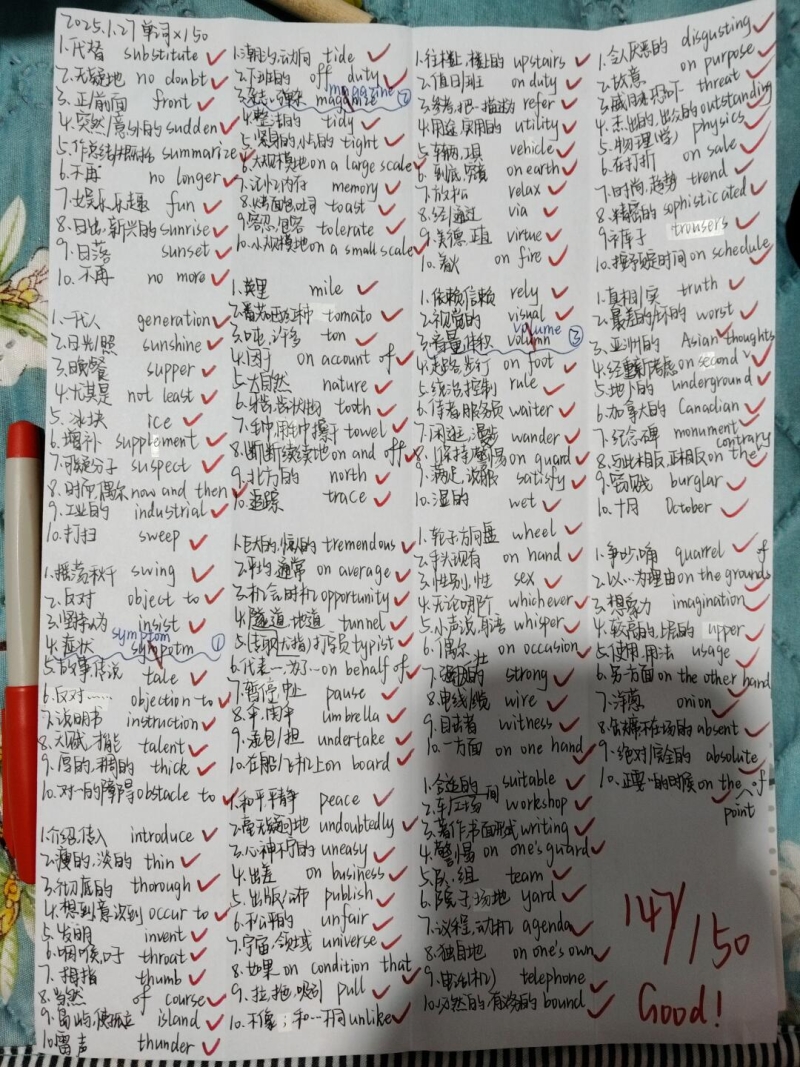 2025.1.27 单词×150
1.代替 substitute
2.无疑地 no doubt
3.正/前面 front
4.突然/意外的 sudden
5.作总结/概括 summarize
6.不再 no longer
7.娱乐,乐趣 fun
8.日出,新兴的 sunrise
9.日落 sunset
10.不再 no more
1.一代人 generation
2.日光/照 sunshine
3.晚餐 supper
4.尤其是 not least
5.冰块 ice
6.增补 supplement
7.可疑分子 suspect
8.时而,偶尔 now and then
9.工业的 industrial
10.打扫 sweep
1.摇荡秋千 swing
2.反对 object to
3.坚持认为 insist
symptom
4.症状 sympotm ①
5.故事,传说 tale
6.反对…… objection to
7.说明书 instruction
8.天赋,才能 talent
9.厚的,稠的 thick
10.对…的障碍 obstacle to
1.介绍,传入 introduce
2.瘦的,淡的 thin
3.彻底的 thorough
4.想到,意识到 occur to
5.发明 invent
6.咽喉,嗓子 throat
7.拇指 thumb
8.当然 of course
9.岛屿,使孤立 island
10.雷声 thunder
1.潮汐,动向 tide
2.下班的 off duty
magazine
3.杂志,弹匣 maganize ②
4.整洁的 tidy
5.紧身的,小的 tight
6.大规模地 on a large scale
7.记忆,内存 memory
8.烤面包,吐司 toast
9.容忍,包容 tolerate
10.小规模地 on a small scale
1.英里 mile
2.番茄 tomato
3.吨,许多 ton
4.因为 on account of
5.大自然 nature
6.牙齿,齿状物 tooth
7.毛巾,用毛巾擦干 towel
8.断断续续地 on and off
9.北方的 north
10.追踪 trace
1.巨大的,惊人的 tremendous
2.平均,通常 on average
3.机会,时机 opportunity
4.隧道,地道 tunnel
5. 打字员 typist
6.代表…,为了… on behalf of
7.暂停,中止 pause
8.伞,雨伞 umbrella
9.承包/担 undertake
10.在船/飞机上 on board
1.和平,平静 peace
2.毫无疑问地 undoubtedly
3.心神不宁的 uneasy
4.出差 on business
5.出版/公布 publish
6.不公平的 unfair
7.宇宙,领域 universe
8.如果 on condition that
9.拉,拖,吸引 pull
10.不像;和…不同 unlike
1.往楼上,楼上的 upstairs
2.值日/班 on duty
3. refer
4.用途,实用的 utility
5.车辆, vehicle
6.到底,究竟 on earth
7.放松 relax
8.经,通过 via
9.美德,正直 virtue
10.着火 on fire
1.依赖,信赖 rely
2.视觉的 visual
volume
3.音量,体积 volumn ③
4.起名步行 on foot
5.统治,控制 rule
6.侍者,服务员 waiter
7.闲逛,漫步 wander
8.(保持)警惕 on guard
9.满足,说服 satisfy
10.湿的 wet
1.轮子,方向盘 wheel
2.手头现有 on hand
3.性别,性 sex
4.无论哪个 whichever
5.小声说,耳语 whisper
6.偶尔 on occusion
7.强壮的 strong
8.电线/缆 wire
9.目击者 witness
10.一方面 on one hand
1.合适的 suitable
2.车间,工场 workshop
3.著作,书面形式 writing
4.警惕 on one's guard
5.队,组 team
6.院子,场地 yard
7.议程,动机 agenda
8.独自地 on one's own
9.电话(机) telephone
10.必然的,有义务的 bound
1.令人厌恶的 disgusting
2.故意 on purpose
3.威胁,恐吓 threat
4.杰出的,出众的 outstanding
5.物理(学) physics
6.在打折 on sale
7.时尚,趋势 trend
8.精密的 sophisticated
9.裤子 trousers
10.按预定时间 on schedule
1.真相/实 truth
2.最差的/坏的 worst
3.亚洲的 Asian
4.经重新考虑 on second thoughts
5.地下的 underground
6.加拿大的 Canadian
7.纪念碑 monument
8.与此相反,正相反 on the contrary
9.窃贼 burglar
10.十月 October
1.争吵,口角 quarrel
2.以…为理由 on the grounds of
3.想象力 imagination
4.较高的,上层的 upper
5.使用,用法 usage
6.另一方面 on the other hand
7.洋葱 onion
8.缺席,不在场的 absent
9.绝对/完全的 absolute
10.正要…的时候 on the point of
147/150
Good!